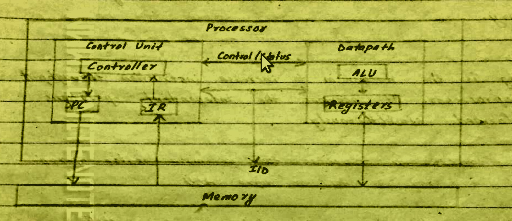 Processor
Control Unit
Datapath
Controller
Control/Status
ALU
PC
IR
Registers
I/O
Memory